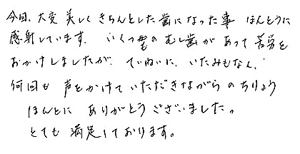 今回、大変美しくきちんとした歯になった事 ほんとうに
感謝しています。いくつものむし歯があって苦労を
おかけしましたが ていねいに、いたみもなく、
何回も声をかけていただきながらのちりょう
ほんとに ありがとうございました。
とても満足しております。